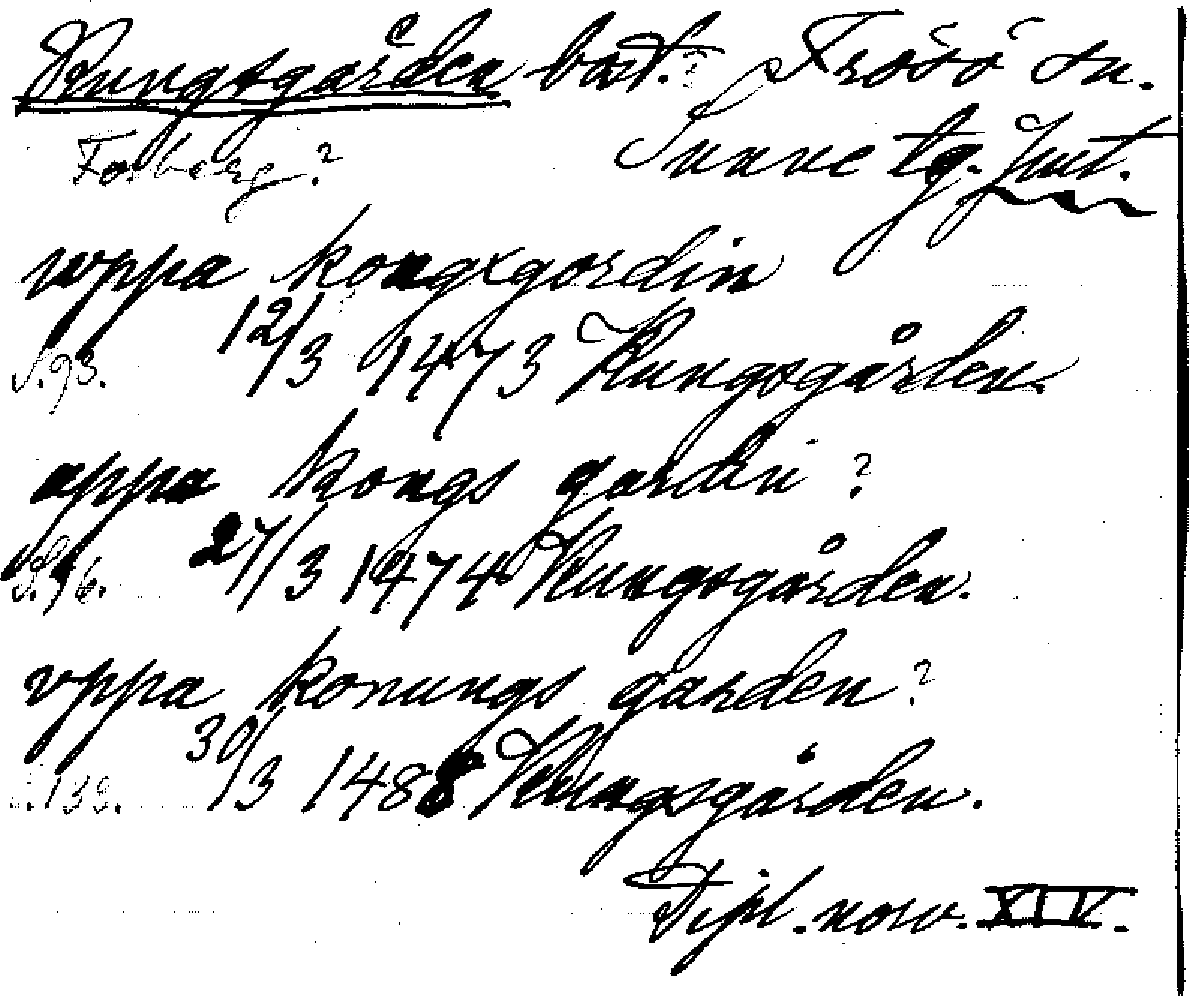 Kungsgården bost.? Frösö sn.
Forberg? Sunne tg. Jmt.
uppa kongxgordin
S. 93. 12/3 1473 Kungsgården.
appa kongs gardin?
S. 96. 27/3 1474 Kungsgården.
vppa konungs garden?
S. 138. 30/3 1488 Kungsgården.
Dipl. norv. XIV.